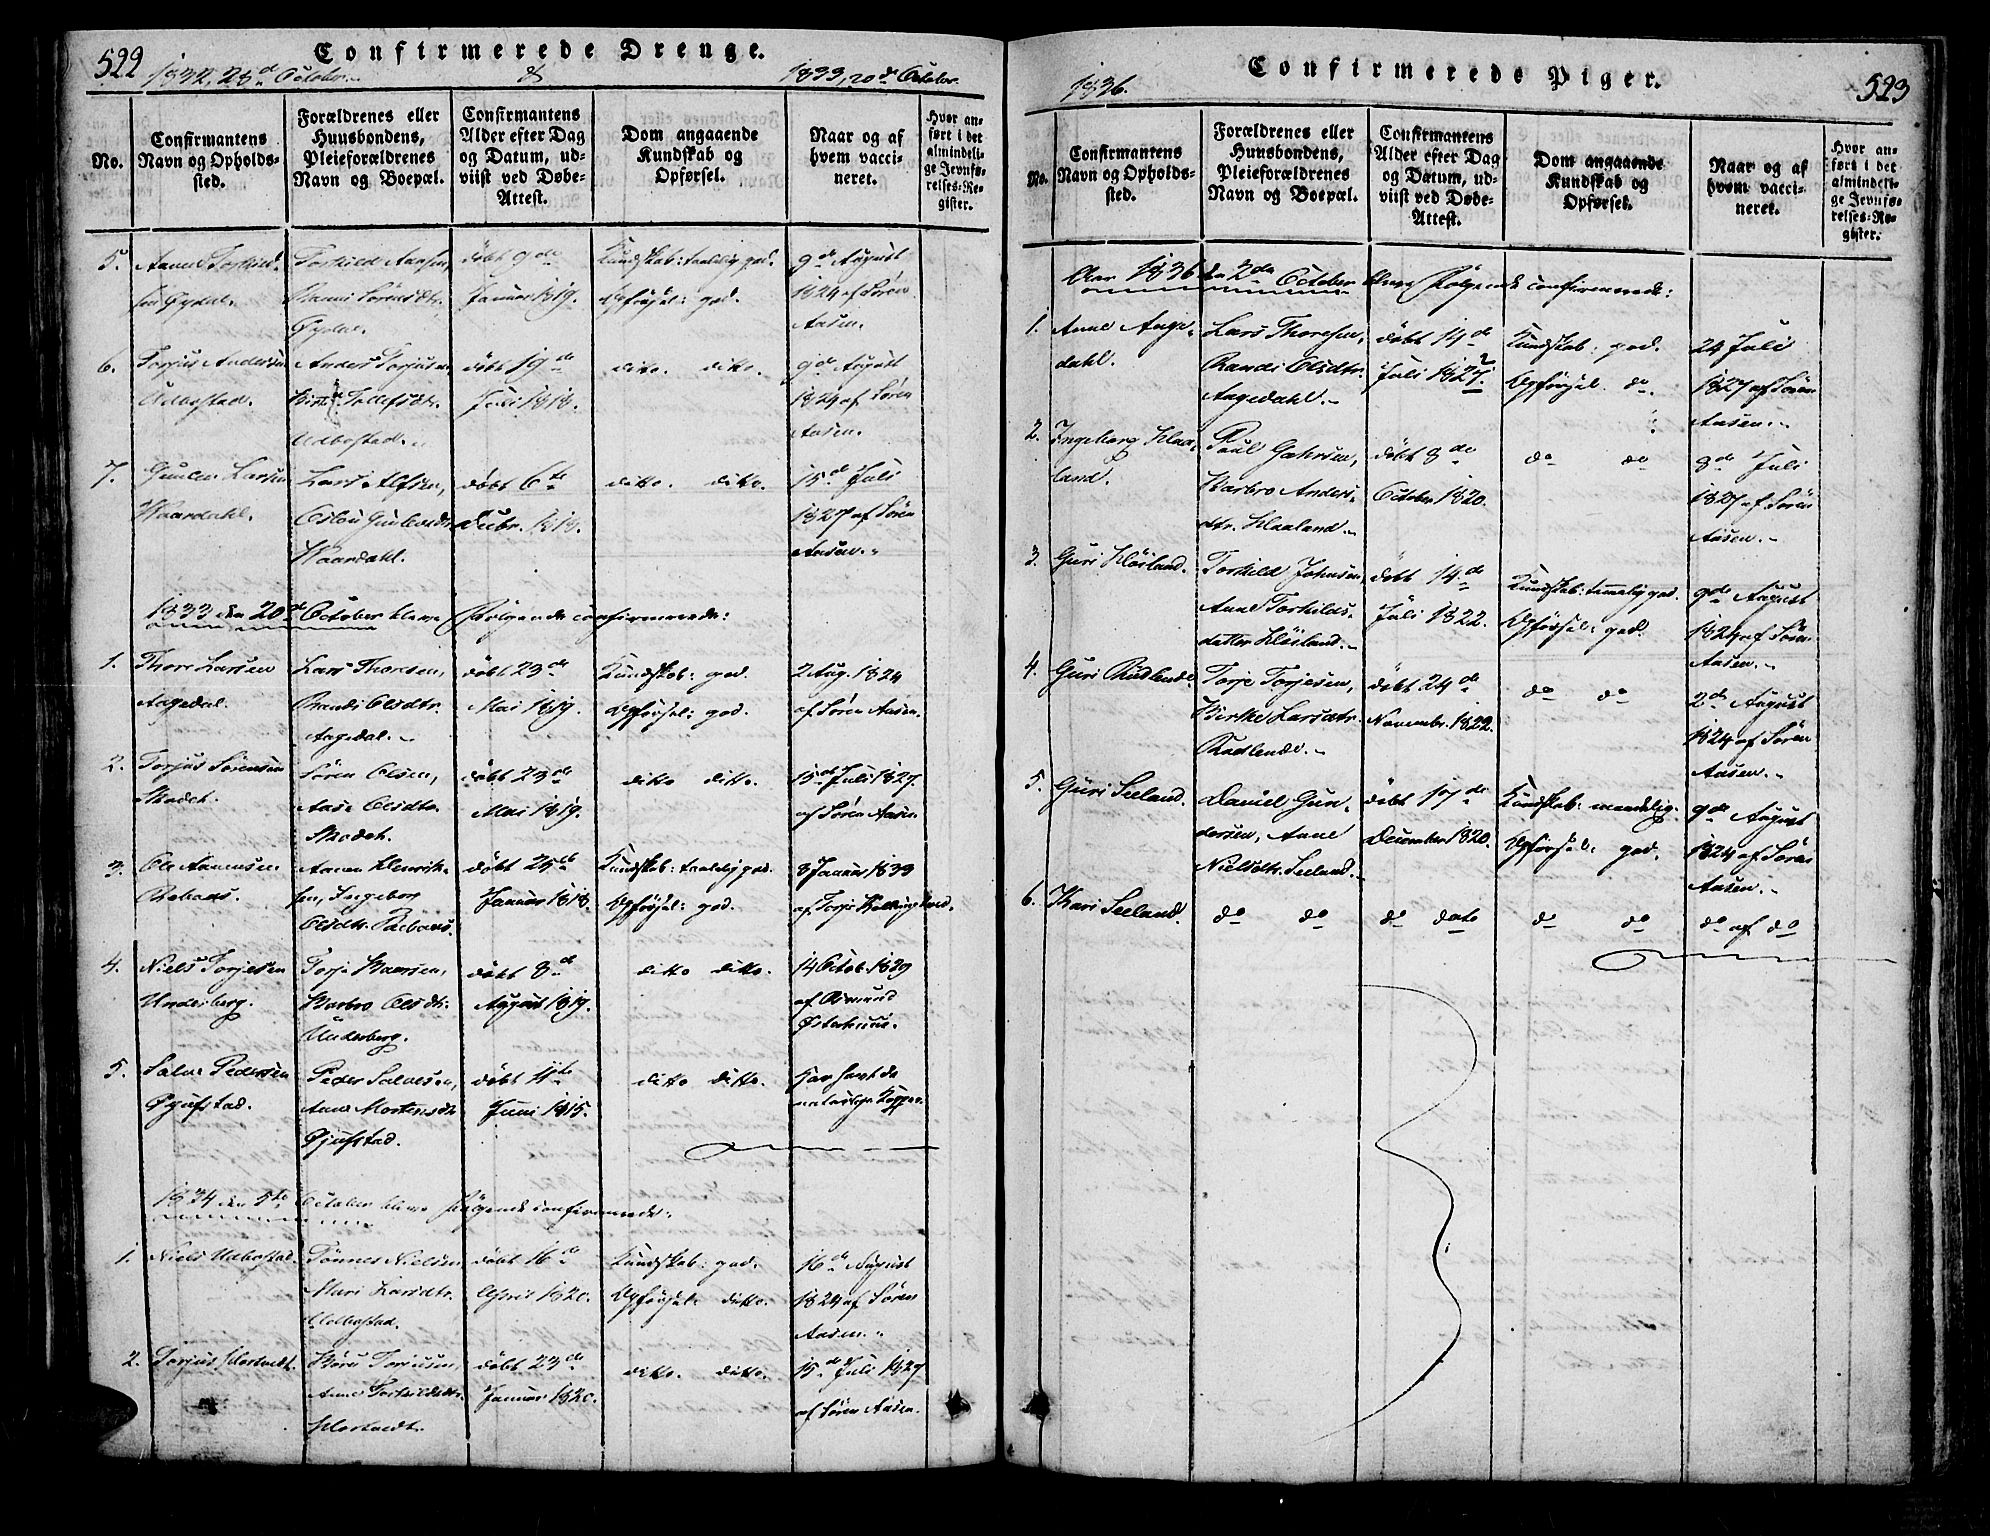 522
Confirmerede Drenge.
1832, 28de October. & 1833, 20de October.
No.
Confirmantens Navn og Opholds-sted.
Forældrenes eller Huusbondens, Pleieforældrenes Navn og Boepæl.
Confirmantens Alder efter Dag og Datum, ud-viist ved Døbe-Attest.
Dom angaaende Kundskab og Opførsel.
Naar og af hvem vacci-neret.
Hvor an-ført i det almindeli-ge Jevnfø-relses-Re-gister.
5. Aanen Torkild- Torkild Aansen, døbt 9de Kundskab: taalelig god. 9de August
sen Øydal. Sørensdtr. Januar 1819. Opførsel: god. 1824 af Søren
Øydal. Aasen.
6. Torjus Andersen Anders Torjusen døbt 19de ditto. ditto. 9de August
Udbostad. Tollefsdtr. Juli 1818. 1824 af Søren
Udbostad. Aasen.
7. Gunlev Larsen Lars Alfsen, døbt 6te ditto. ditto. 15de Juli
Waardahl. Oslou Gunlevsdtr. Decbr. 1818. 1827 af Søren
Waardahl. Aasen.
1833 den 20de October bleve følgende confirmerede:
1. Thore Larsen Lars Thoresen, døbt 23de Kundskab: god. 2 Aug. 1824
Aagedal. Randi Olsdtr. Mai 1819. Opførsel: god. af Søren Aasen.
Aagedal.
2. Torjus Sørensen Søren Olsen, døbt 23de ditto ditto. 15de Juli 1827.
Aase Olsdtr. Mai 1819. af Søren Aasen
3. Ole Aanensen Aanen Henrik- døbt 25de Kundskab: taalelig god. 8 Januar 1833
sen, Ingebor Januar 1818. Opførsel: god. af Torje
Olsdtr.
4. Niels Torjesen Torje døbt 8de ditto ditto. 14 Octob. 1829
Underberg. Barbro Olsdtr. August 1819. af Asmund
Underberg.
5. Salve Pedersen Peder Salvesen, døbt 11te ditto ditto. Har havt de
Øjufstad. Anne Mortensdtr. Juni 1815. naturlige Kopper.
Øjufstad.
1834 den 5te October bleve følgende confirmerede:
1. Niels Udbostad. Tønnes Nielsen døbt 16de Kundskab: god. 16de August
Mari Larsdtr. April 1820. Opførsel: ditto. 1824 af Søren
Udbostad. Aasen.
2. Torjus Hortvedt. Torjusen, døbt 23de ditto. ditto. 15de Juli 1827
Anne Torkildsdtr. Januar 1820. af Søren Aasen.
Hortvedt.
523
Confirmerede Piger.
1836.
No.
Confirmantens Navn og Opholds-sted.
Forældrenes eller Huusbondens, Pleieforældrenes Navn og Boepæl.
Confirmantens Alder efter Dag og Datum, ud-viist ved Døbe-Attest.
Dom angaaende Kundskab og Opførsel.
Naar og af hvem vacci-neret.
Hvor an-ført i det almindeli-ge Jevnfø-relses-Re-gister.
Aar 1836 den 2den October bleve følgende confirmerede:
1. Anne Aage- Lars Thoresen, døbt 14de Kundskab: god. 24 Juli
dahl. Randi Olsdtr. Juli 1822. Opførsel. do. 1827 af Søren
Aagedahl. Aasen.
2. Ingeborg Haa- Poul døbt 8de do do 8de Juli
land. Barbro Anders- October 1820. 1827 af Søren
dtr. Haaland. Aasen.
3. Guri Høiland. Torkild Johnsen, døbt 14de Kundskab: temmelig god. 9de August
Anne Torkilds- Juli 1822. Opførsel: god. 1824 af Søren
datter Høiland. Aasen.
4. Guri Rødlende. Torje Torjesen, døbt 24de do do 2de August
Birthe Larsdtr. Novembr. 1822. 1824 af Søren
Aasen.
5. Guri Seeland. Daniel Gun- døbt 17de Kundskab: maadelig. 9de August
dersen, Anne December 1820. Opførsel: god. 1824 af Søren
Nielsdtr. Seeland. Aasen.
6. Kari Seeland. do do do dato do do do af do